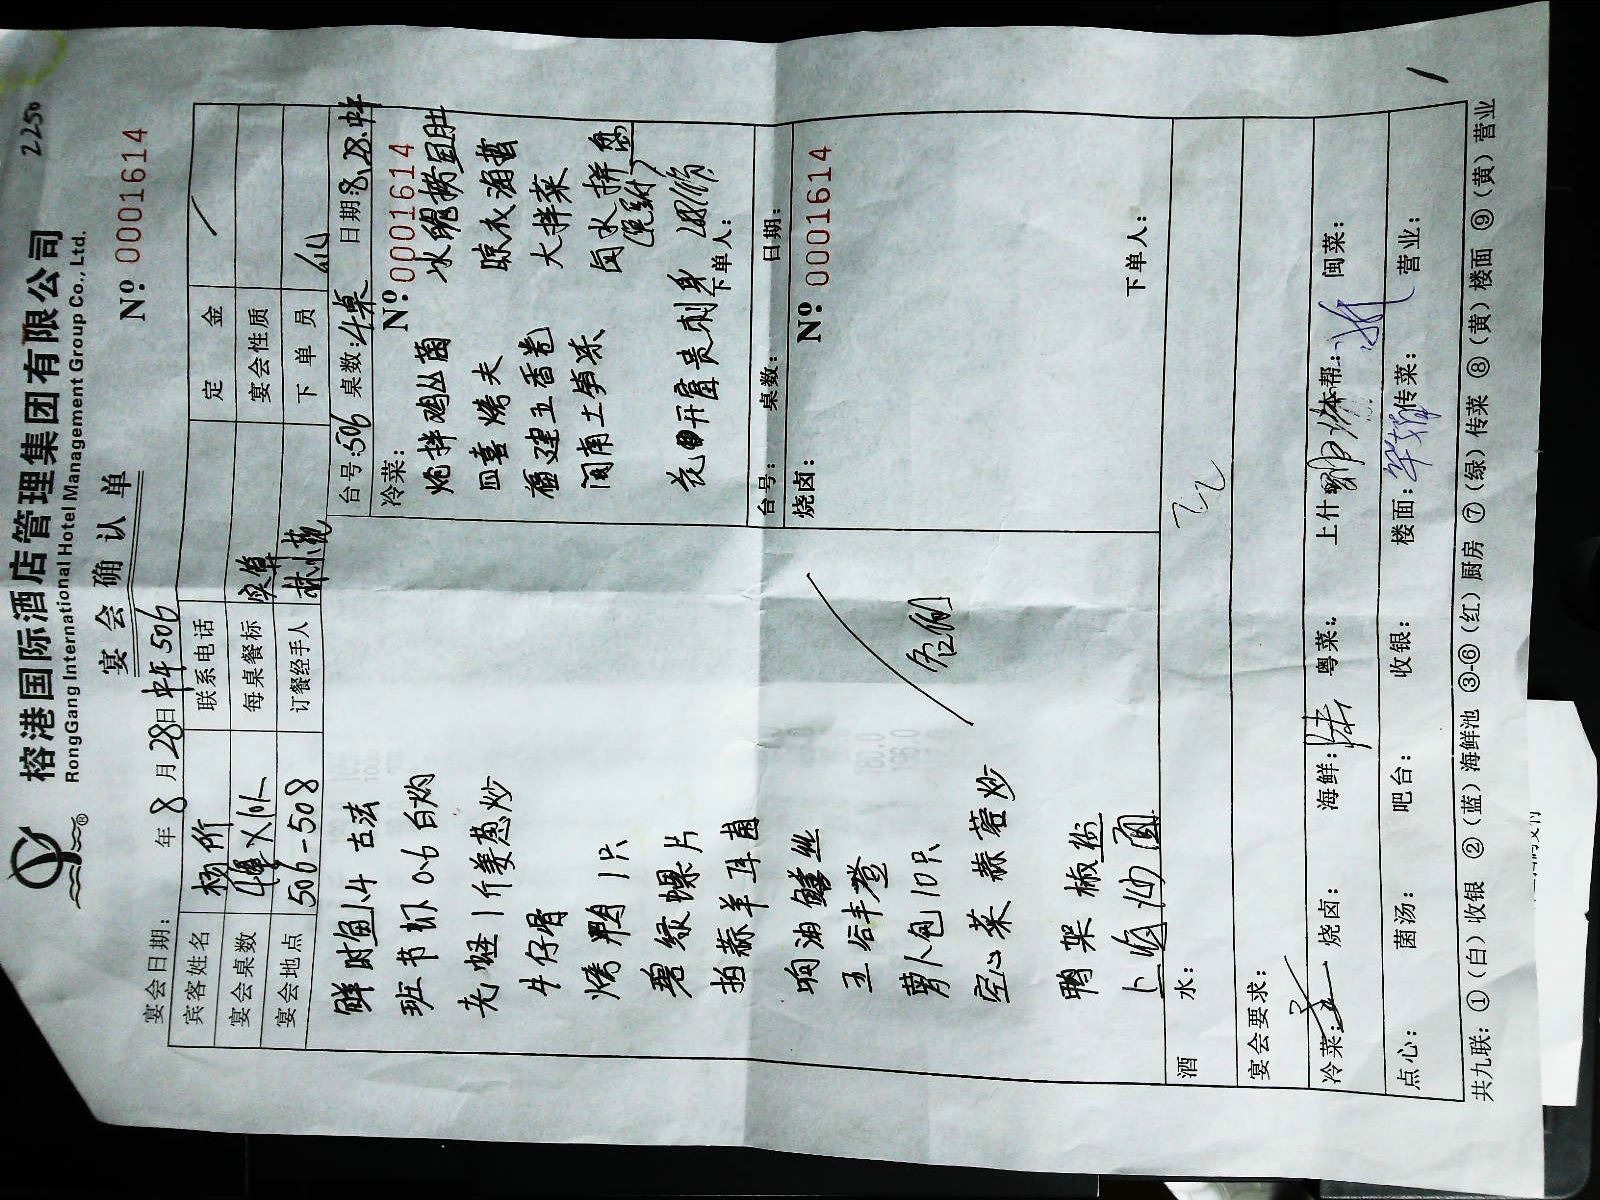 榕港国际酒店管理集团有限公司
RongGang International Hotel Management Group Co., Ltd.
2250
宴会确认单
Nº 0001614
宴会日期： 年8月28日 中午 506
宾客姓名 杨所 联系电话 定金
宴会桌数 4桌×10人 每桌餐标 宴会性质
宴会地点 506-508 订餐经手人 林小苑 下单员
台号：506 桌数：4桌 日期：8.28.中午
冷菜： Nº 0001614
炝拌鸡丛菌
四喜烤夫 凉衣海蜇
福建五香卷 大拌菜
闽南土笋冻 卤水拼盘
刺身 下单人：
台号： 桌数： 日期：
烧卤： Nº 0001614
下单人：
鲜时鱼1.4 古法
班节虾 0.6 白灼
老蛏1斤姜葱炒
牛仔骨
烤鸭1只
碧绿螺片
拍蒜羊耳菌
响油鳝丝
五谷丰登
萝卜包10只
空心菜 蒜蓉炒
鸭架椒盐
卤面
酒水：
宴会要求：
冷菜： 烧卤： 海鲜： 粤菜： 上什 本帮： 闽菜：
点心： 菌汤： 吧台： 收银： 楼面： 传菜： 营业：
共九联：①（白）收银 ②（蓝）海鲜池 ③-⑥（红）厨房 ⑦（绿）传菜 ⑧（黄）楼面 ⑨（黄）营业